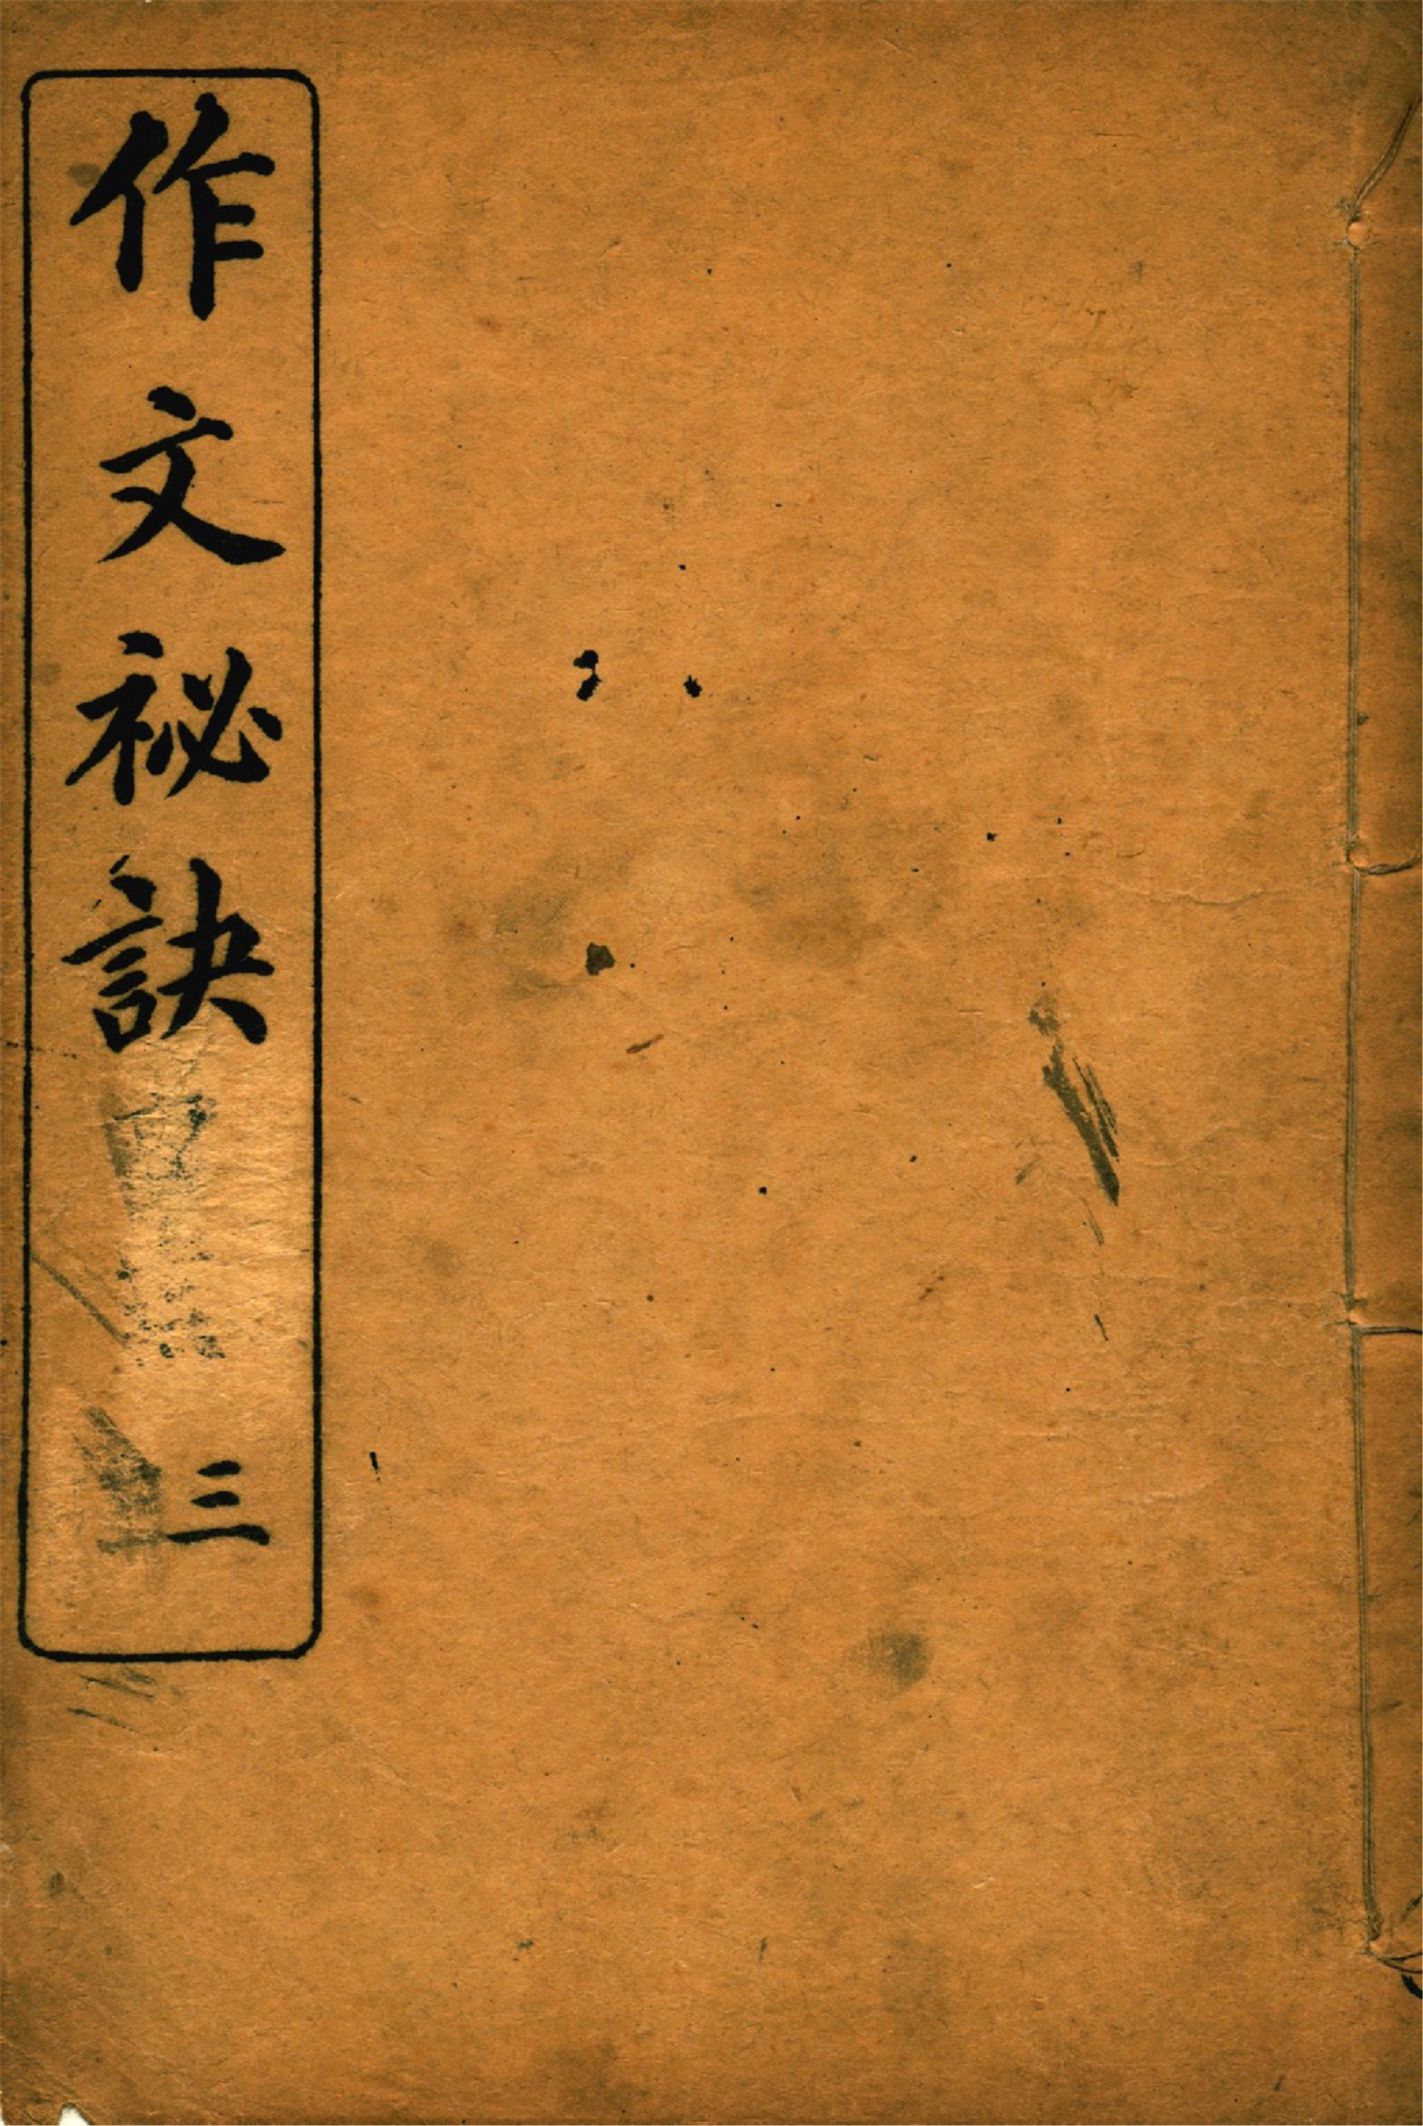 作文祕訣
三